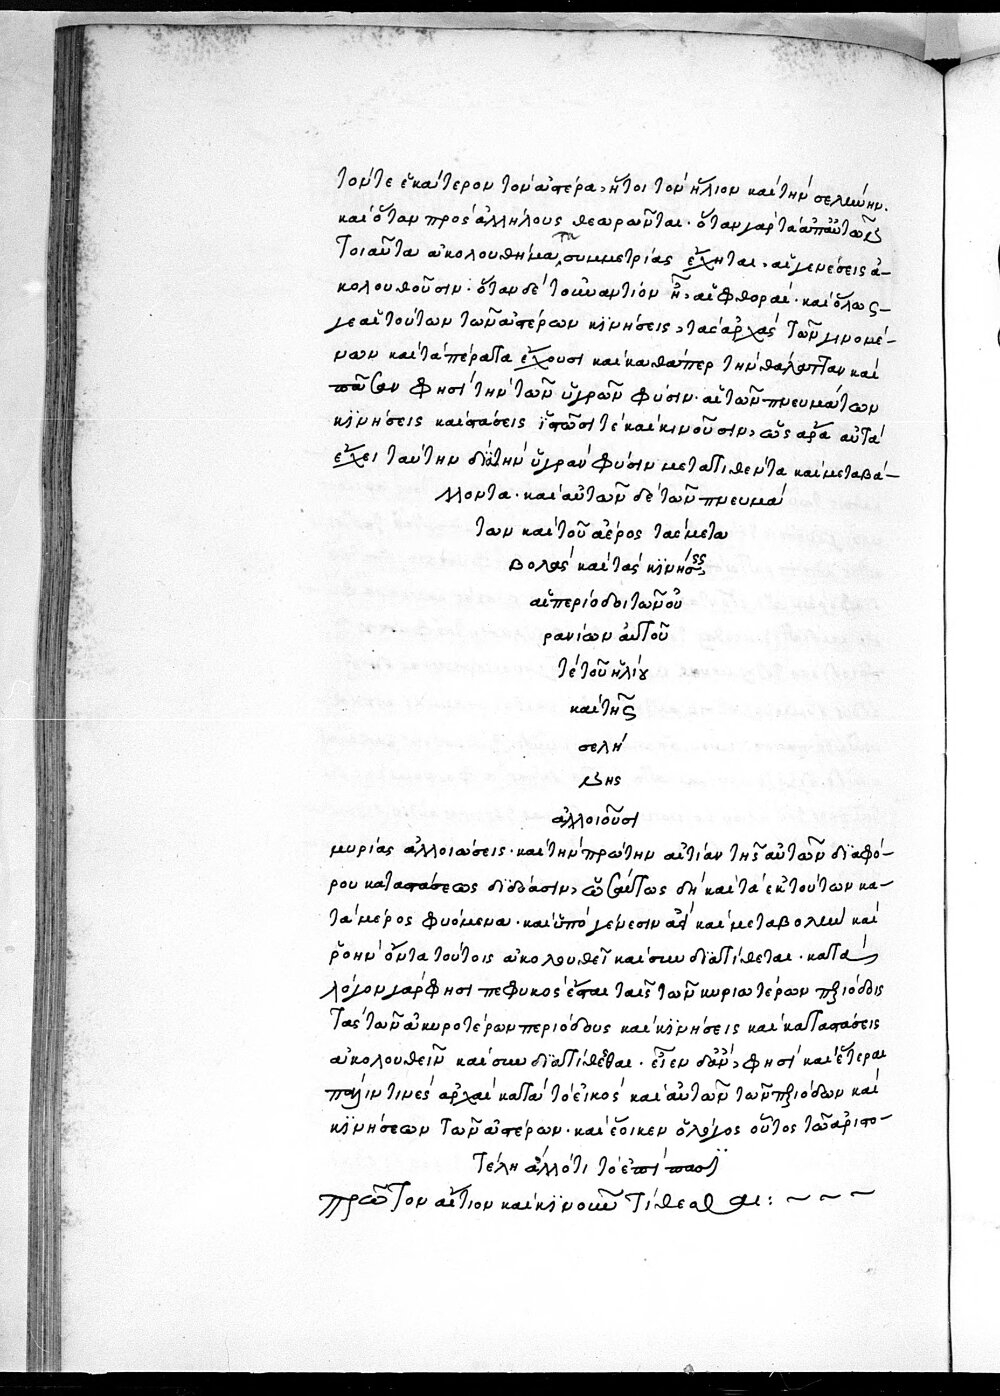 τόν τε ἑκάτερον τὸν ἀστέρα, ἤτοι τὸν ἥλιον καὶ τὴν σελήνην.
καὶ ὅταν πρὸς ἀλλήλους θεωρῶνται· ὅταν γὰρ τὰ ἀπ' αὐτῶν
τοιαῦτα ἀκολουθήματα συμμετρίας ἔχηται, αἱ γενέσεις ἀ-
κολουθοῦσιν· ὅταν δὲ τοὐναντίον ᾖ, αἱ φθοραί· καὶ ὅλως
γε αἱ τούτων τῶν ἀστέρων κϊνήσεις, τὰς ἀρχὰς τῶν γινομέ-
νων καὶ τὰ πέρατα ἔχουσι καὶ καθάπερ τὴν θάλατταν καὶ
πᾶσαν φησὶ τὴν τῶν ὑγρῶν φύσιν· αἱ τῶν πνευμάτων
κϊνήσεις καὶ στάσεις ἱστῶσί τε καὶ κινοῦσιν, ὡς ἄρα αὐτὰ
ἔχει ταύτην διὰ τὴν ὑγρὰν φύσιν μετατιθέντα καὶ μεταβά-
λλοντα· καὶ αὐτῶν δὲ τῶν πνευμά
των καὶ τοῦ ἀέρος τὰς μετα
βολὰς καὶ τὰς κϊνήσεις,
αἱ περίοδοι τῶν οὐ
ρανίων αὐτοῦ
τε τοῦ ἡλίου
καὶ τῆς
σελή
νης
ἀλλοιοῦσι
μυρίας ἀλλοιώσεις· καὶ τὴν πρώτην αἰτίαν τῆς αὐτῶν διαφό-
ρου καταστάσεως διδόασιν, ὡσαύτως δὴ καὶ τὰ ἐκ τούτων κα-
τὰ μέρος φυόμενα· καὶ ὑπὸ γένεσιν ἀεὶ καὶ μεταβολὴν καὶ
ῥοὴν ὄντα τούτοις ἀκολουθεῖ καὶ συνδιατίθεται· κατὰ
λόγον γὰρ φησὶ πεφυκὸς ἕπεται ταῖς τῶν κυριωτέρων περιόδοις
τὰς τῶν ἀκυροτέρων περιόδους καὶ κϊνήσεις καὶ καταστάσεις
ἀκολουθεῖν καὶ συνδιατίθεσθαι· εἶεν δ' ἂν, φησὶ καὶ ἕτεραι
πάλιν τινὲς ἀρχαὶ κατὰ τὸ εἰκὸς καὶ αὐτῶν τῶν περιόδων καὶ
κϊνήσεων τῶν ἀστέρων· καὶ ἔοικεν ὁ λόγος οὗτος τῶ ἀριστο-
τέλη ἀλλότι τὸ ἐπὶ πᾶσι
πρῶτον αἴτιον καὶ κϊνοῦν τίθεσθαι: ~ ~ ~